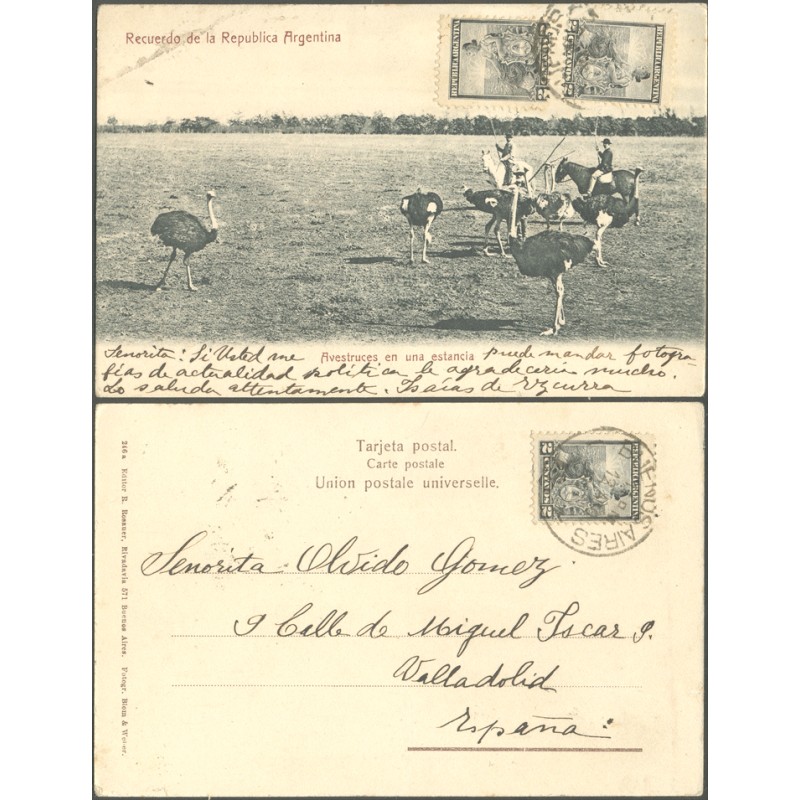 Recuerdo de la Republica Argentina
REPUBLICA ARGENTINA
CENTAVOS
REPUBLICA ARGENTINA
CENTAVOS
Avestruces en una estancia
Senorita: Si Usted me puede mandar fotogra-
fias de actualidad política le agradecería mucho.
Lo saluda attentamente. Isaías de Ezcurra
Tarjeta postal.
Carte postale
Union postale universelle.
REPUBLICA ARGENTINA
CENTAVOS
BUENOS AIRES
Senorita Olvido Gomez
9 Calle de Miguel Iscar 9.
Valladolid
España:
246a Editor R. Rosauer, Rivadavia 571 Buenos Aires. Fotogr.